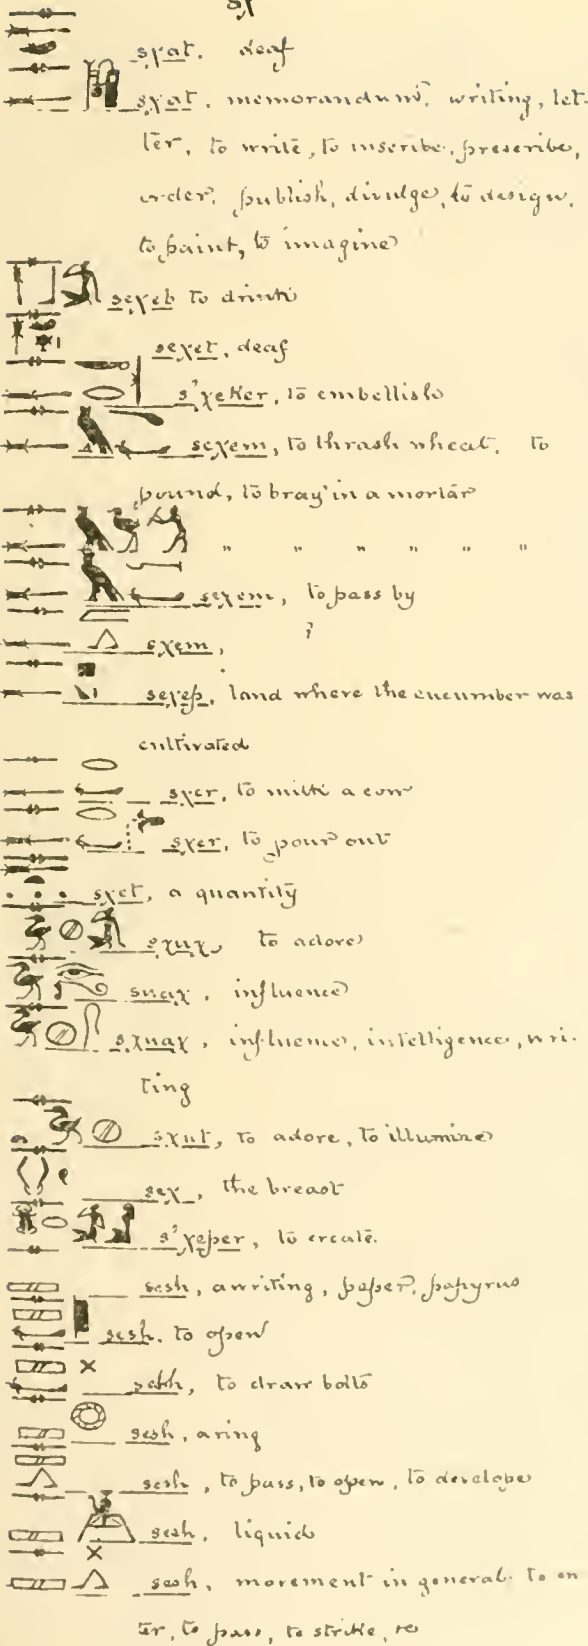 sχ
sχat, deaf
sχat, memorandum, writing, let-
ter, to write, to inscribe, prescribe,
order, publish, divulge, to design,
to paint, to imagine
seχeb to drink
seχet, deaf
s'χeker, to embellish
seχem, to thrash wheat, to
pound, to bray in a mortar
" " " " " "
seχem, to pass by
sχem, ?
seχep, land where the cucumber was
cultivated
sχer, to milk a cow
sχer, to pour out
sχet, a quantity
sχuχ, to adore
suaχ, influence
sχuaχ, influence, intelligence, wri-
ting
sχut, to adore, to illumine
seχ, the breast
s'χeper, to create.
sesh, a writing, paper, papyrus
sesh, to open
to draw bolts
sesh, a ring
sesh, to pass, to open, to develope
sesh, liquid
sesh, movement in general to en
ter, to pass, to strike,